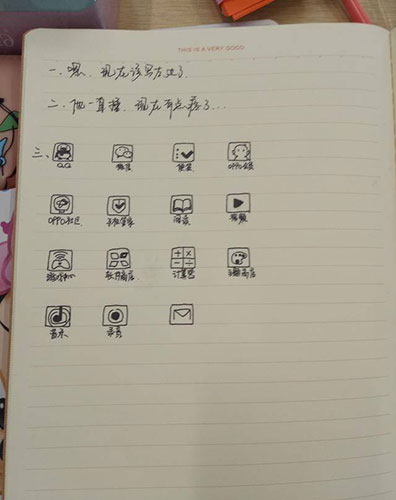 THIS IS A VERY GOOD
一、嗯、现在该写方过了
二、他一直搜、现在有点疼了...
三、
QQ 微信 便签 OPPO
OPPO社区 手机管家 阅读 视频
游戏中心 软件商店 计算器 主题商店
音乐 录音